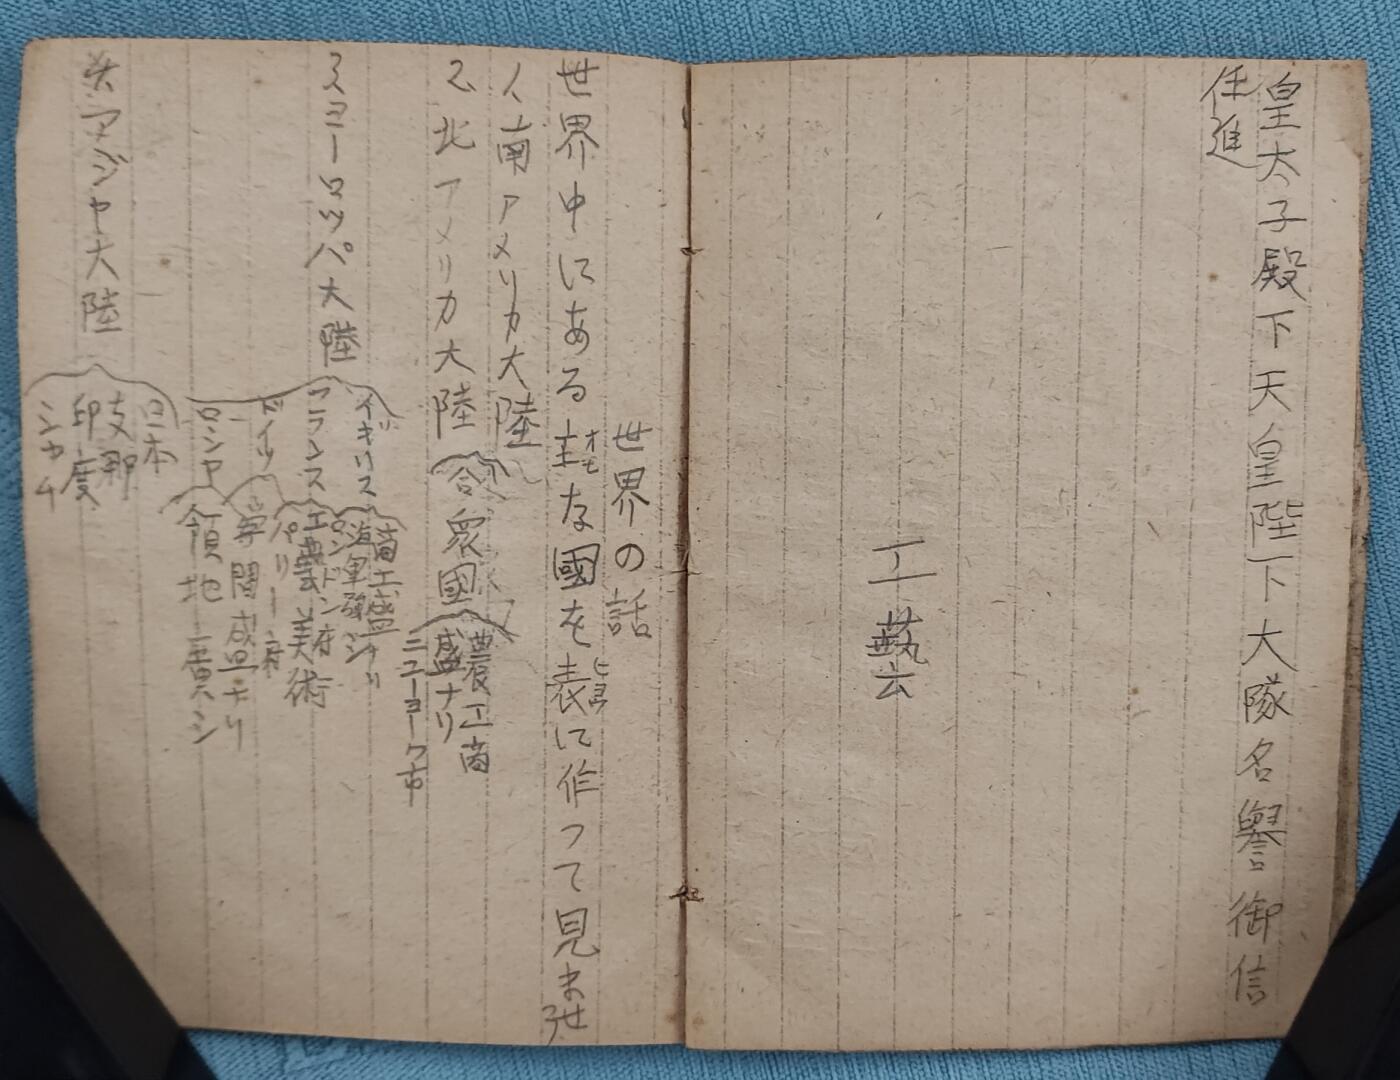 皇太子殿下天皇陛下大隊名譽御信
任進
工藝
世界の話
世界中にある主な國を表に作って見ませう
オモ
ヒョー
1、南アメリカ大陸
2、北アメリカ大陸
合衆國
農工商
盛ナリ
ニューヨーク市
3、ヨーロッパ大陸
イギリス
商工盛ナリ
海軍強シ
ロンドン府
フランス
工藝美術
パリー府
ドイツ
学問盛ナリ
ロシヤ
領地廣シ
アジヤ大陸
日本
支那
印度
シャム